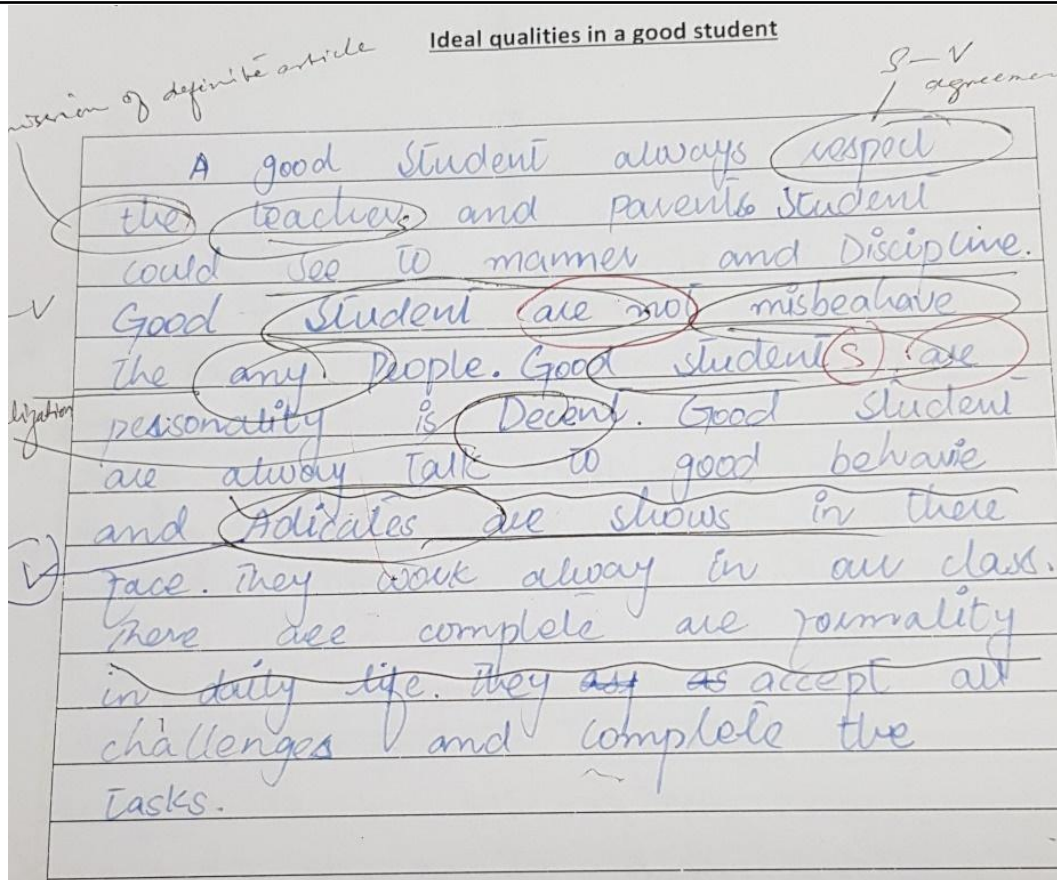 Ideal qualities in a good student
omission of definite article
S-V
agreement
A good Student always respect
the teachers and parents Student
could see to manner and Discipline.
-V
Good Student are not misbeahave
the any People. Good students are
lization
perisonality is Decent. Good Student
are alway Talk to good behavie
and Aditates are shows in there
face. They work alway in our class.
There are complete are formality
in daily life. they as accept all
challenges and complete the
Tasks.